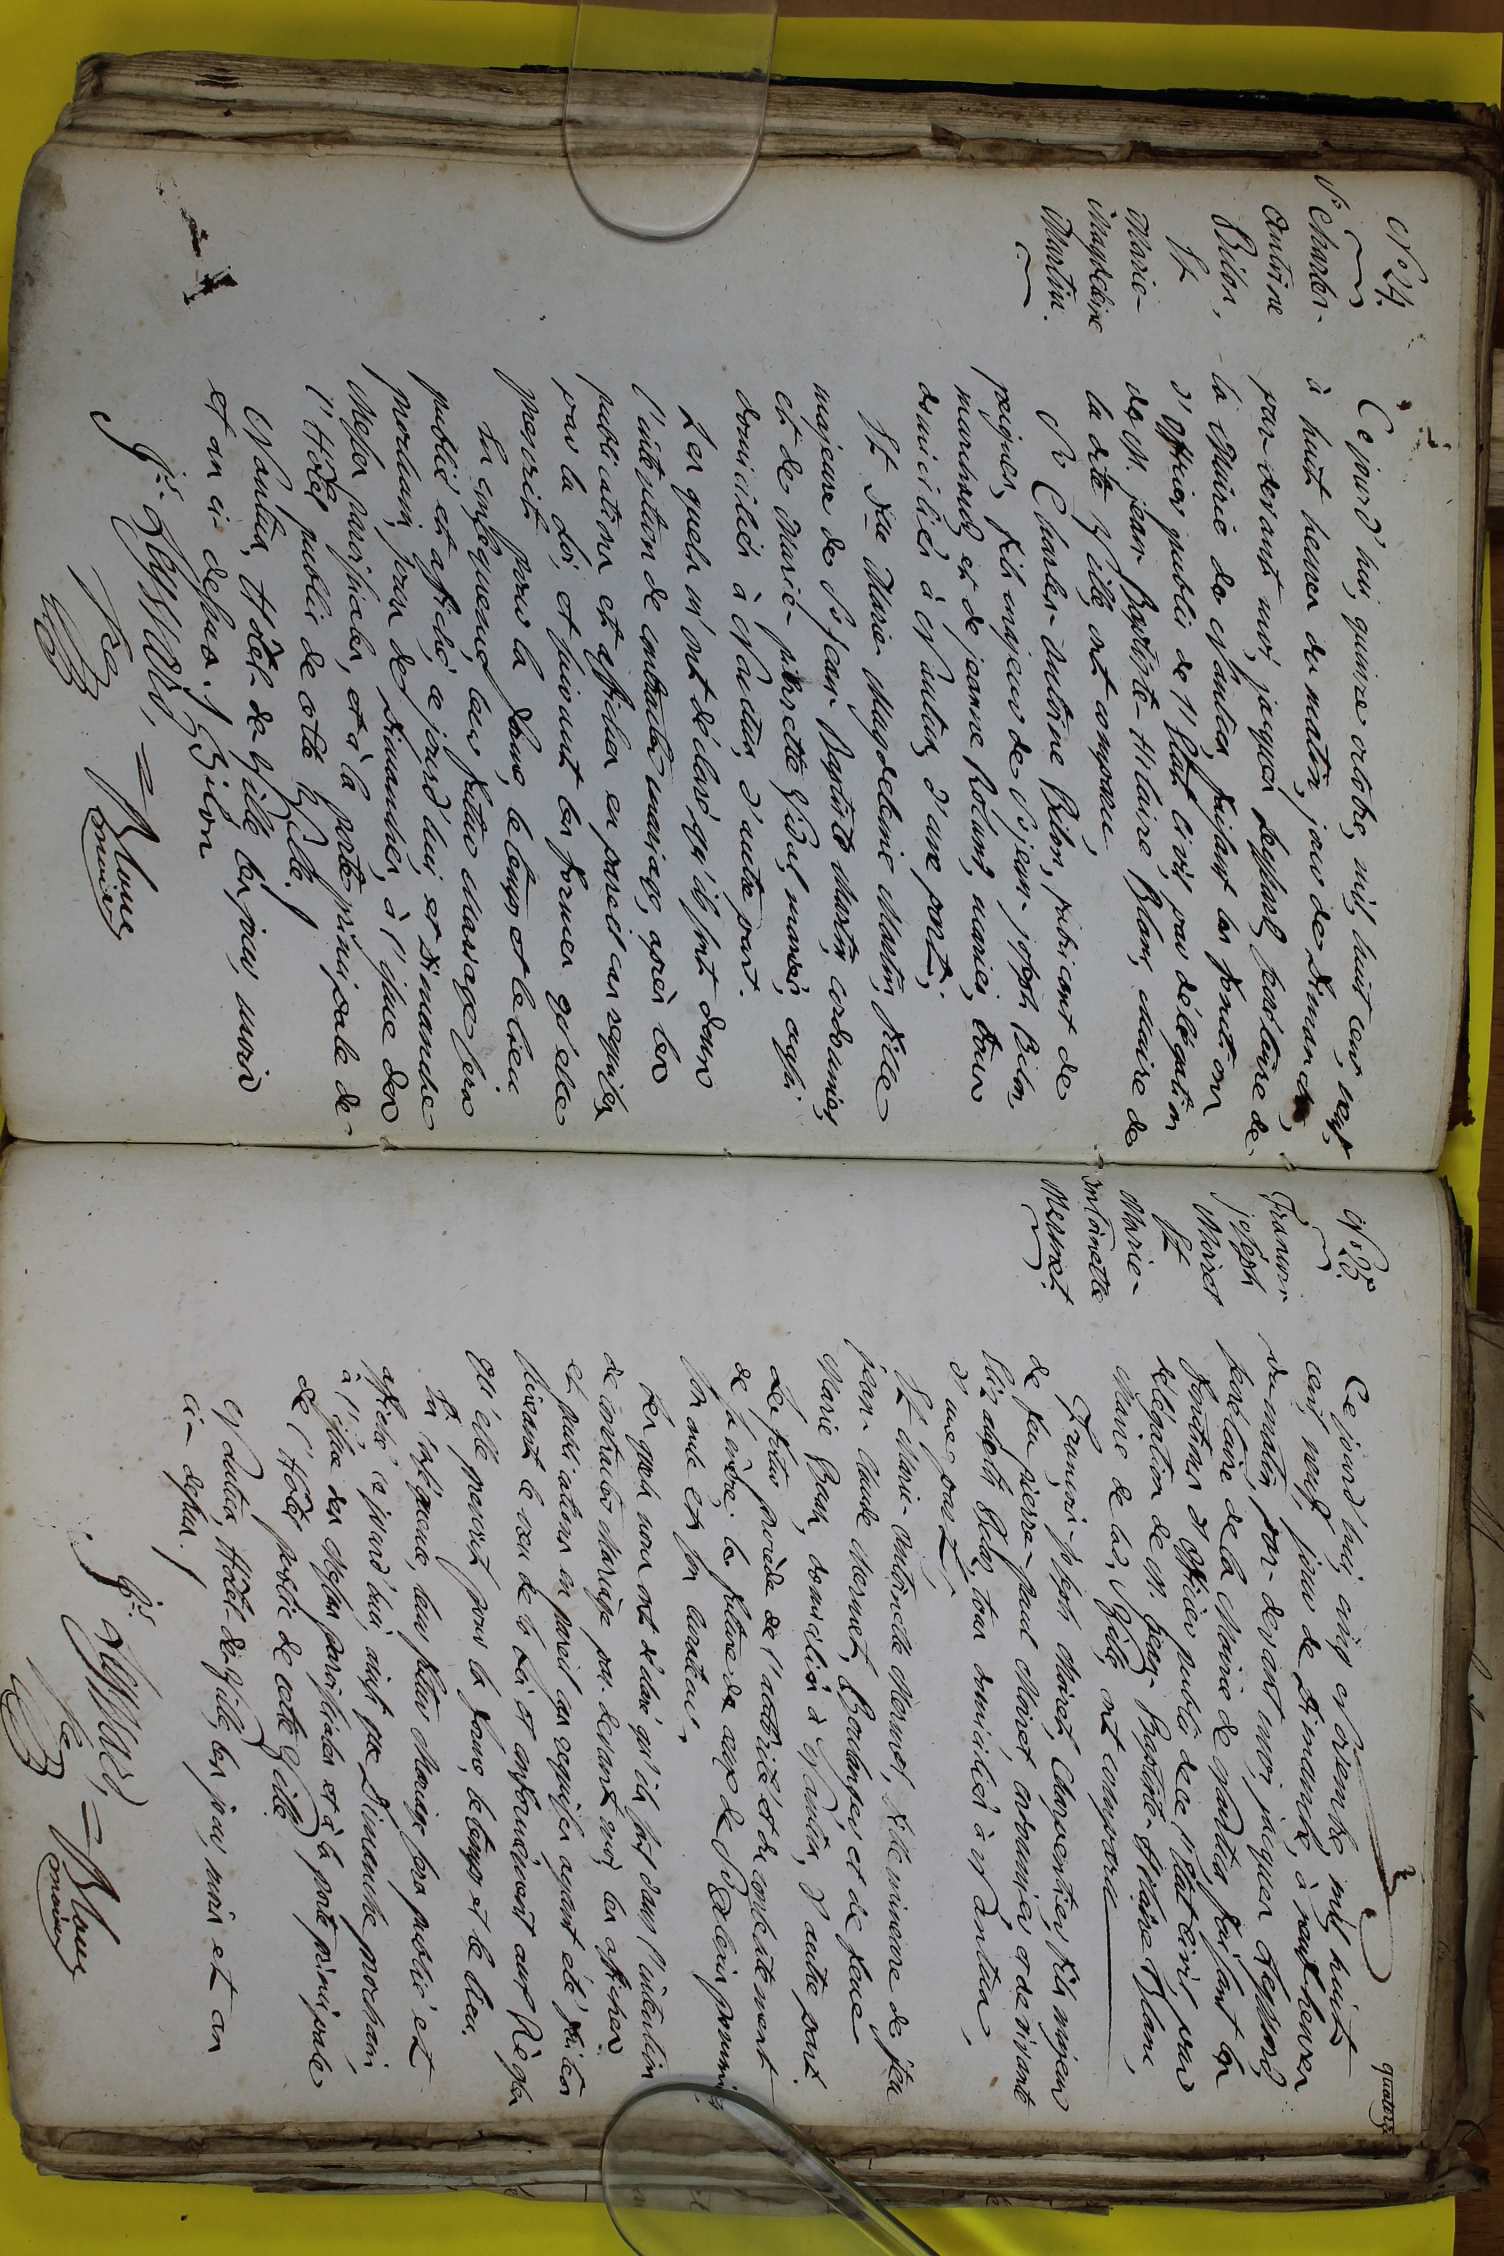 N° 24.
Sr Charles-
Antoine
Bilon,
Et
Marie-
Magdeleine
Martin.
Ce jourd'hui, quinze octobre, mil huit cent, neuf,
à huit heures du matin, jour de Dimanche,
par devant moi, jacques Leyssard, secrétaire de
la Mairie de Nantua, faisant les fonctions
d'officier public de l'Etat civil par délégation
de M. jean Baptiste-Hilaire Blanc, maire de
la dite Ville, ont comparu,
Sr Charles-Antoine Bilon, fabricant de
peignes, fils majeur de Sr jean-joseph Bilon,
marchand, et de jeanne Roland, mariés, tous
domiciliés à Nantua, d'une part;
Et Dlle Marie-Magdeleine Martin, fille
majeure de Sr jean-Baptiste Martin, cordonnier,
et de Marie-pierrette mariés, aussi
domiciliés à Nantua, d'autre part.
Les quels m'ont déclaré qu'ils sont dans
l'intention de contracter mariage, après les
publications et affiches en pareil cas requises
par la loi, et suivant les formes qu'elle
prescrit pour la forme, le temps et le lieu
En conséquence, leur futur mariage sera
publié et affiché, ce jourd'hui, et Dimanche
prochain, jours de Dimanches, à l'issue des
Messes paroissiales, et à la porte principale de
l'Hôtel public de cette Ville./
Nantua, Hôtel-de-Ville, les jour, mois
et an ci-dessus./ Bilon
Js. Leyssard, = Blanc
Sre maire
quatorze
N° 25.
François
joseph
Moiret
Et
Marie-
Antoinette
Mermet.
Ce jourd'hui, cinq Novembre, mil huit
cent, neuf, jour de Dimanche, à neuf heures
du matin, par-devant moi, jacques Leyssard,
secrétaire de la Mairie de Nantua, faisant les
fonctions d'officier public de l'Etat civil, par
délégation de M. jean-Baptiste-Hilaire Blanc,
Maire de lad. Ville, ont comparu
François-joseph Moiret, Charpentier, fils majeur
de feu pierre-paul Moiret cordonnier, et de vivante
tous domiciliés à Nantua,
d'une part;
Et Marie-Antoinette Mermet, fille mineure de feu
jean-Claude Mermet, Boulanger et de feue
Marie domiciliée à Nantua, d'autre part.
Le futur procède de l'autorité et du consentement
de sa mère; la future de ceux de Sr
son oncle et son curateur.
Les quels nous ont déclaré qu'ils sont dans l'intention
de contracter Mariage par devant moi, les affiches
et publications en pareil cas requises ayant été faites
suivant le vœu de la loi et conformément aux Règles
qu'elle prescrit pour la forme, le temps et le lieu.
En conséquence, leur futur Mariage sera publié et
affiché ce jourd'hui, ainsi que Dimanche prochain,
à l'issue des Messes paroissiales et à la porte principale
de l'Hôtel public de cette Ville.
Nantua, Hôtel-de-Ville, les jour, mois et an
ci-dessus./
Js. Leyssard, = Blanc
Sre maire